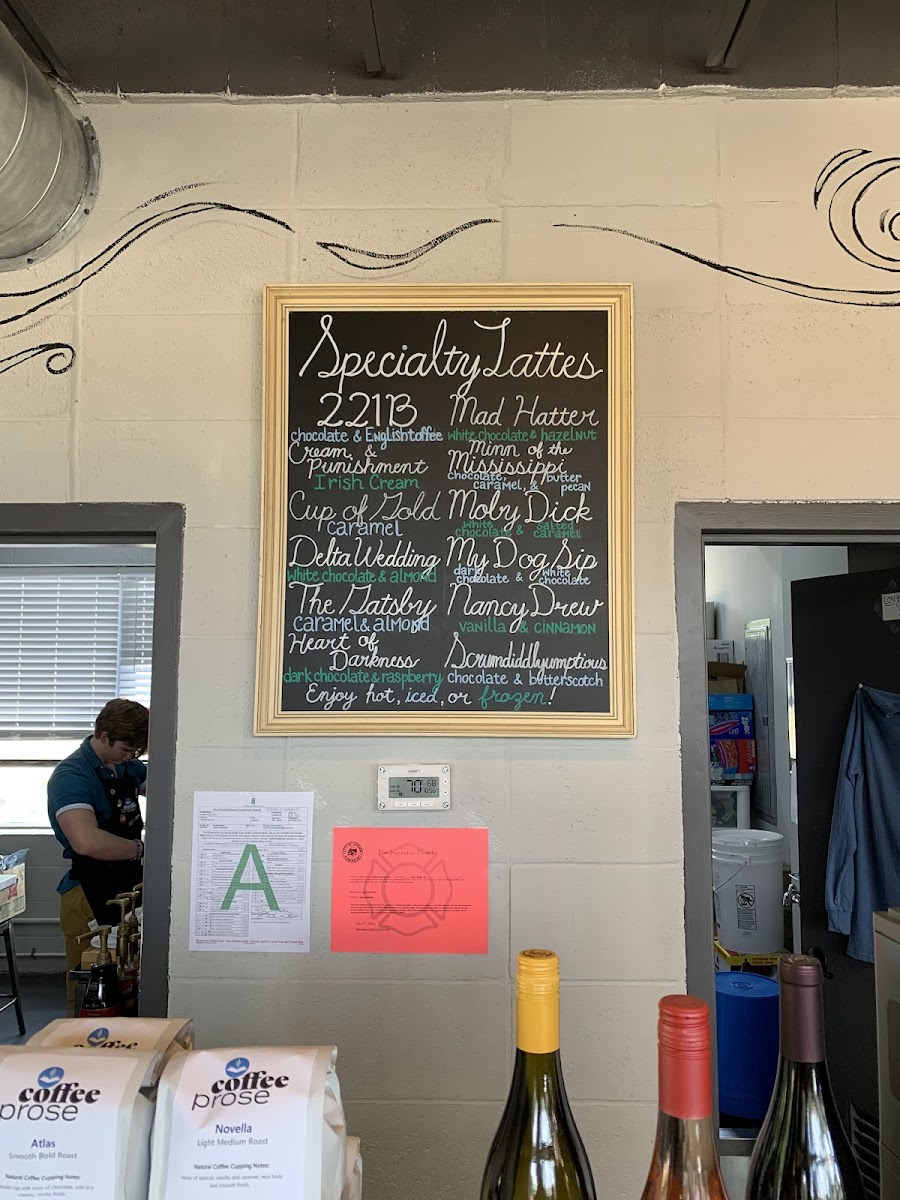 Specialty Lattes
221B
chocolate & English toffee
Cream &
Punishment
Irish Cream
Cup of Gold
caramel
Delta Wedding
white chocolate & almond
The Gatsby
caramel & almond
Heart of
Darkness
dark chocolate & raspberry
Mad Hatter
white chocolate & hazelnut
Minn of the
Mississippi
chocolate,
caramel, &
butter
pecan
Moby Dick
white
chocolate &
salted
caramel
My Dog Sip
dark
chocolate &
white
chocolate
Nancy Drew
vanilla & cinnamon
Scrumdiddlyumptious
chocolate & butterscotch
Enjoy hot, iced, or frozen!
A
70
68
coffee
prose
Atlas
Smooth Bold Roast
Natural Coffee Cupping Notes:
coffee
prose
Novella
Light Medium Roast
Natural Coffee Cupping Notes:
coffee
Ziploc